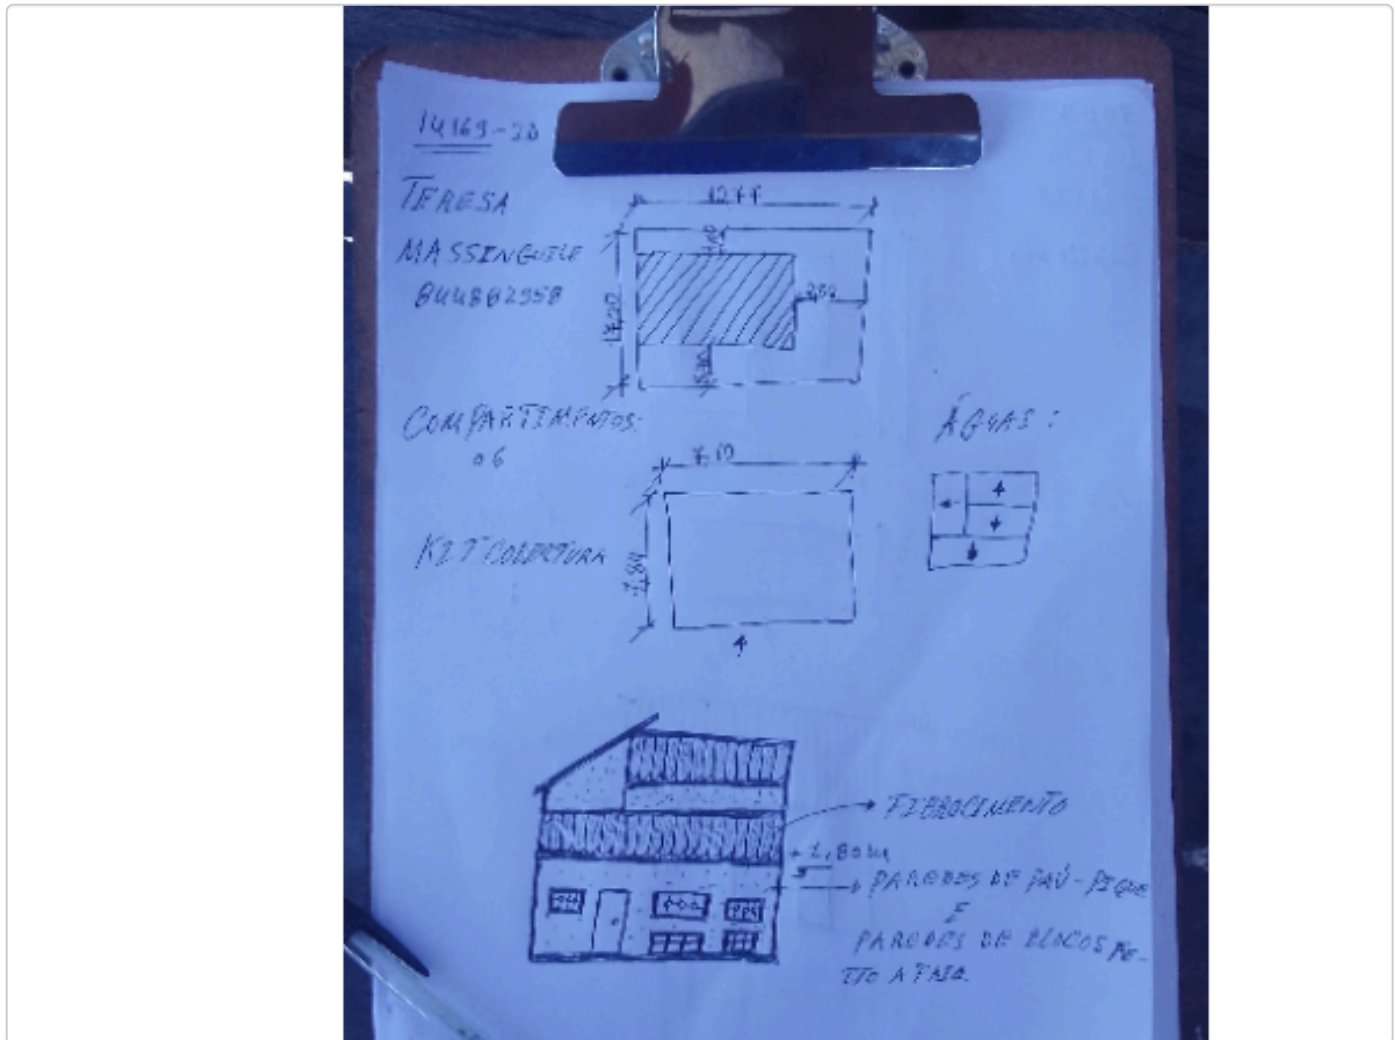 14169-20
TERESA
MASSINGUILE
844882958
1277
17,20
2,80
COMPARTIMENTOS:
06
ÁGUAS:
7,10
KIT COBERTURA
7,84
FIBROCIMENTO
PAREDES DE PAÚ-PIQUE
E
PAREDES DE BLOCOS FE-
ITO A FAIA.